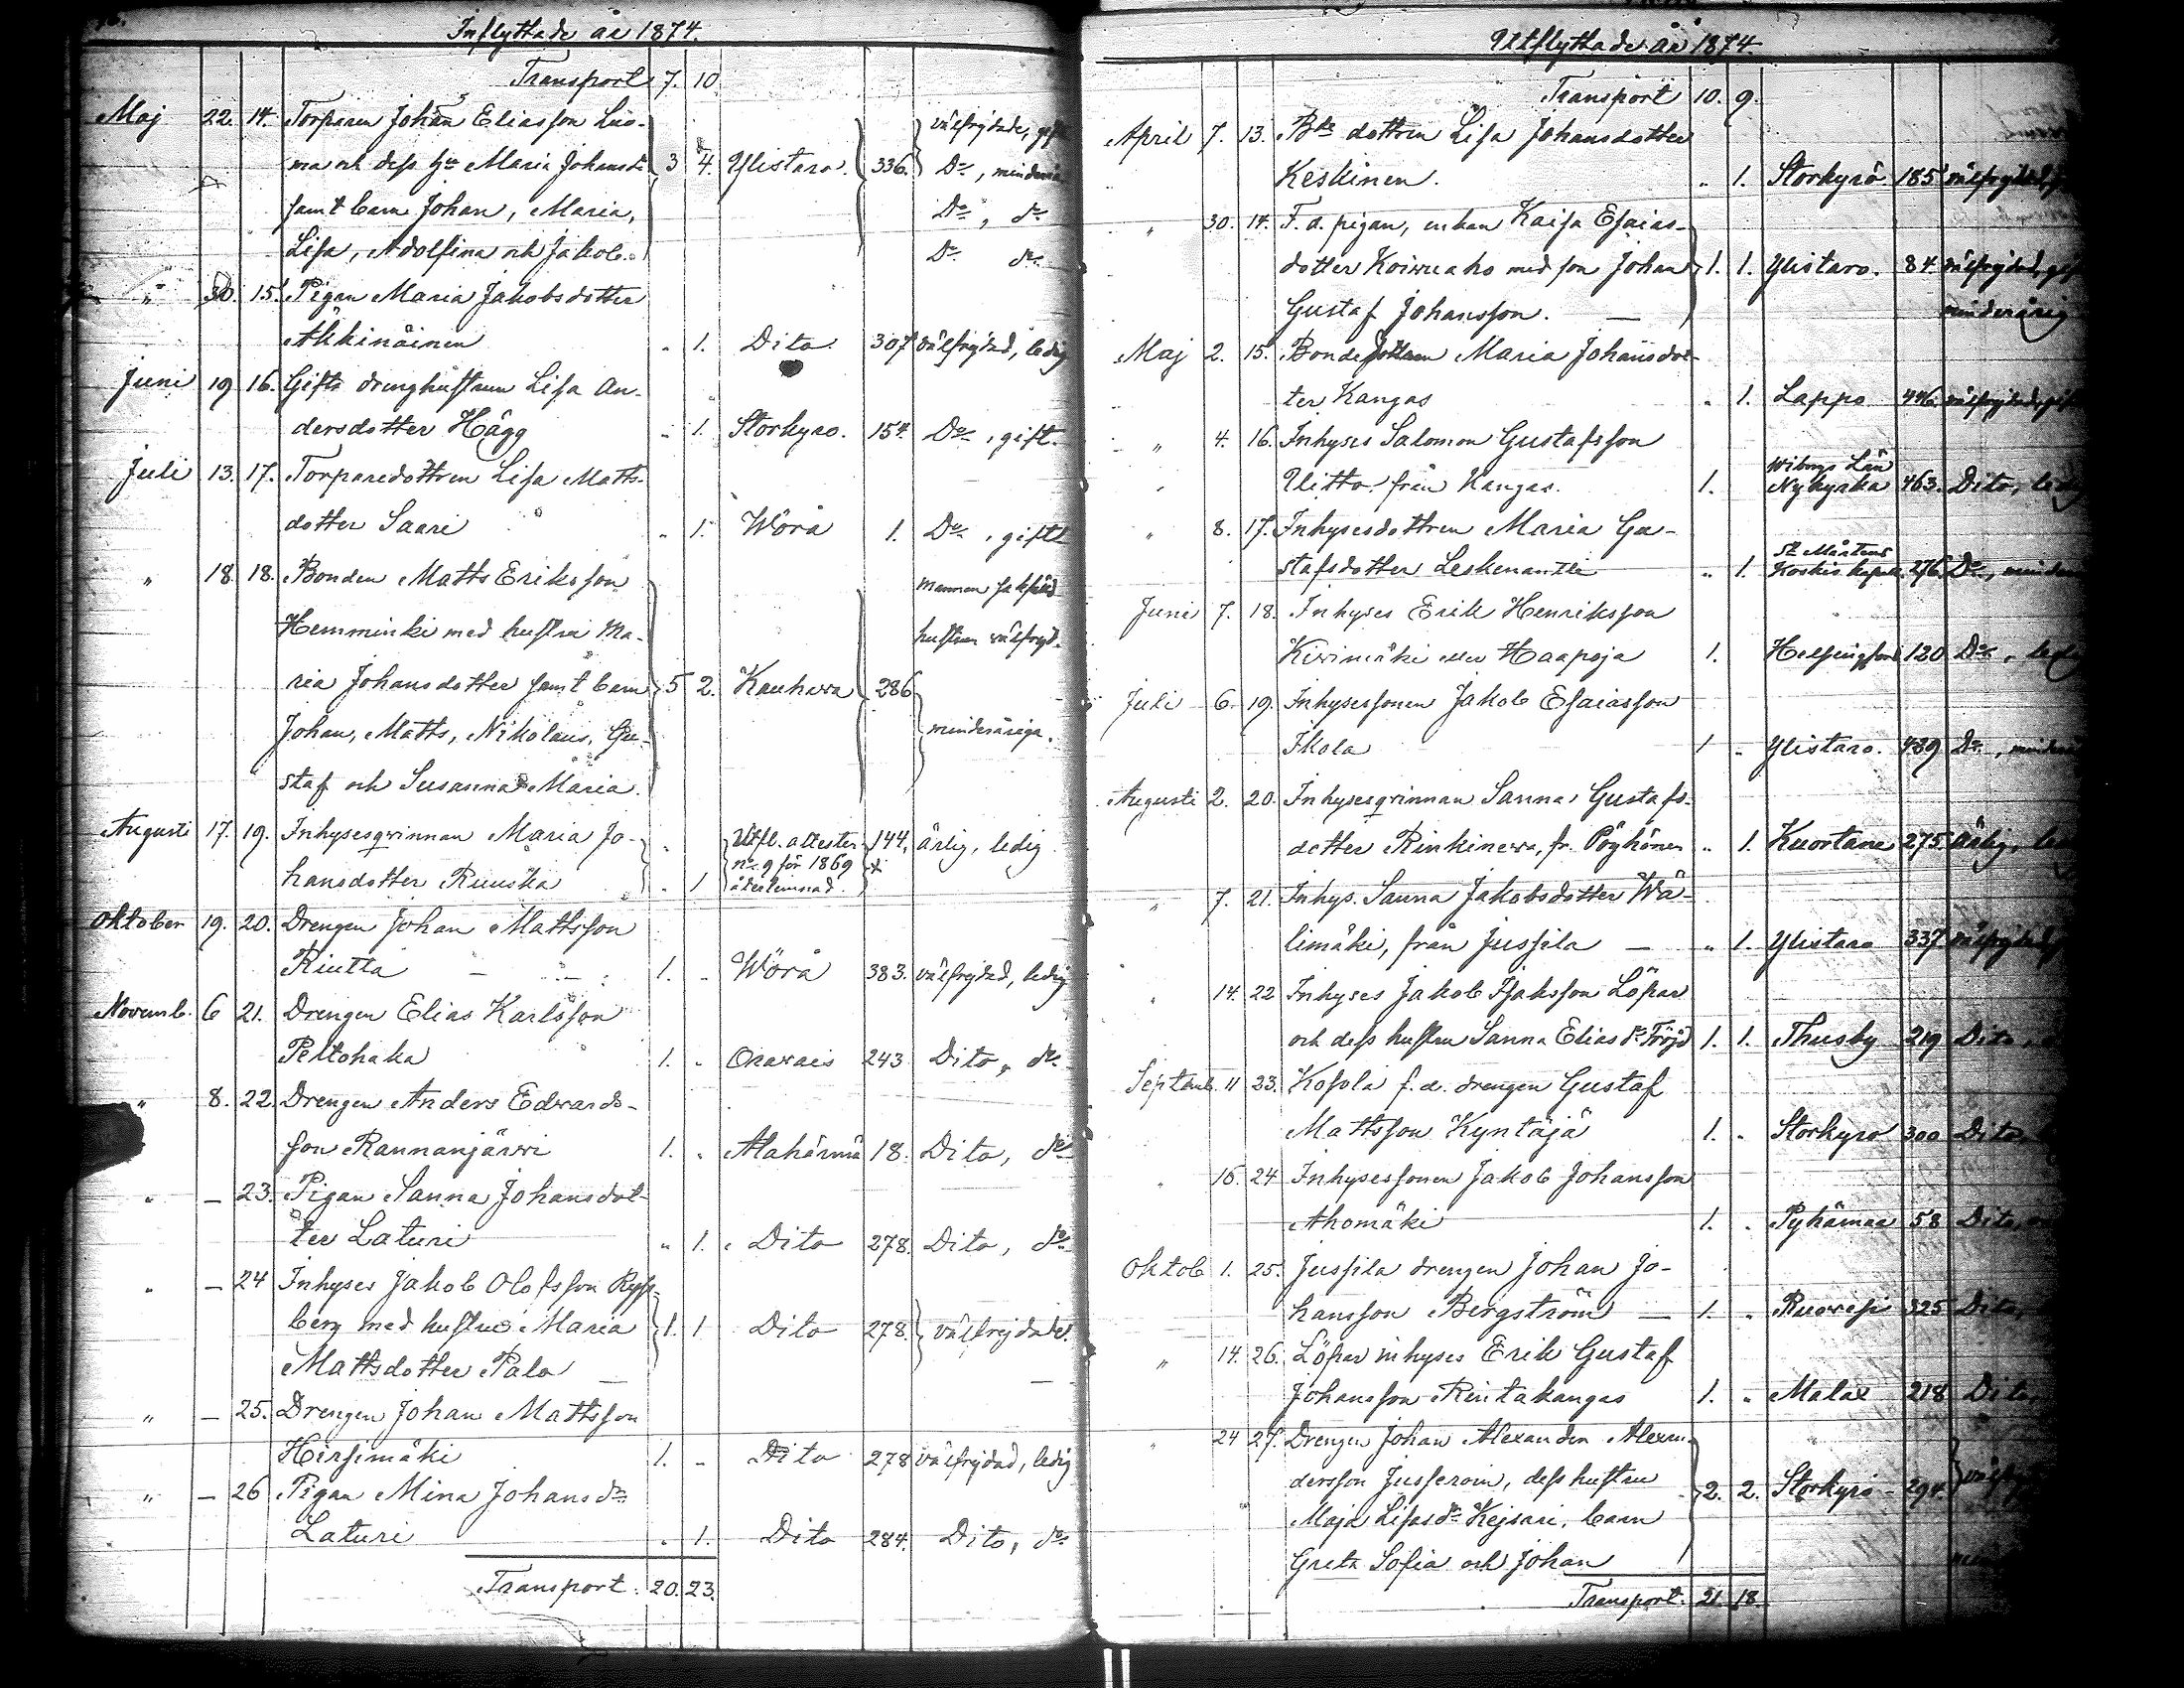 Inflyttade år 1874.
Transport 7. 10.
Maj 22. 14. Torparen Johan Eliasson Luo-
ma och dess hu Maria Johansdr 3 4. Ylistaro. 336. Do, minderår
samt barn Johan, Maria, Do, do
Lisa, Adolfina och Jakob. Do do
" 30. 15. Pigan Maria Jakobsdotter
Akkinäinen " 1. Dito 307 välfrejdad, ledig
Juni 19 16. Gifta drenghustrun Lisa An-
dersdotter Hägg " 1. Storkyro. 154. Do, gift.
Juli 13. 17. Torparedottren Lisa Matts-
dotter Saari " 1. Wörå 1. Do, gift
" 18. 18. Bonden Matts Eriksson mannen
Hemminki med hustru Ma- hustrun välfrejd.
ria Johansdotter samt barn 5 2. Kauhava 286
Johan, Matts, Nikolaus, Gu- minderåriga.
staf och Susanna Maria.
Augusti 17. 19. Inhysesqvinnan Maria Jo- Utfl. attesten 144, ärlig, ledig
hansdotter Ruuska " 1 no 9 för 1869
återlemnad.
Oktober 19. 20. Drengen Johan Mattsson
Riutta 1. " Wörå 383. välfrejdad, ledig
Novemb. 6 21. Drengen Elias Karlsson
Peltohaka 1. " Oravais 243 Dito, do
" 8. 22. Drengen Anders Edwards-
son Rannanjärvi 1. " Alahärmä 18. Dito, do
" — 23. Pigan Sanna Johansdot-
ter Laturi " 1. Dito 278. Dito, do
" — 24 Inhyses Jakob Olofsson
berg med hustru Maria 1. 1 Dito 278. välfrejdade.
Mattsdotter Palo
" — 25. Drengen Johan Mattsson
Hirsimäki 1. " Dito 278 välfrejdad, ledig
" — 26 Pigan Mina Johansdr
Laturi " 1. Dito 284. Dito, do
Transport. 20. 23.
Utflyttade år 1874.
Transport 10. 9.
April 7. 13. Bde dottren Lisa Johansdotter
Keskinen. " 1. Storkyrö. 185
" 30. 14. F.d. pigan, enkan Kaisa Esaias-
dotter Koivuaho med son Johan 1. 1. Ylistaro. 84
Gustaf Johansson. — minderårig
Maj 2. 15. Bondedottren Maria Johansdot-
ter Kangas " 1. Lappo 446.
" 4. 16. Inhyses Salomon Gustafsson
Ulitto från Kangas. 1. Wiborgs Län
Nykyrka 463. Dito, ledig
" 8. 17. Inhysesdottren Maria Gu-
stafsdotter Leskenantti " 1. St. Mårtens
Koskis kapell 276. Do,
Juni 7. 18. Inhyses Erik Henriksson
Kivimäki eller Haapoja 1. Helsingfors 120 Do, ledig
Juli 6. 19. Inhysessonen Jakob Esaiasson
Ikola 1 " Ylistaro. 489 Do,
Augusti 2. 20. Inhysesqvinnan Sanna Gustafs-
dotter Rinkineva, fr. Pöyhönen " 1. Kuortane 275 ärlig,
" 7. 21. Inhys. Sanna Jakobsdotter Wä-
limäki, från Jussila — " 1. Ylistaro 337
" 14. 22 Inhyses Jakob Isaksson Löpar
och dess hustru Sanna Eliasdr 1. 1. Thusby 219 Dito
Septemb. 11 23. Kosola f.d. drengen Gustaf
Mattsson Kyntäjä 1. " Storkyro 300 Dito
" 16. 24 Inhysessonen Jakob Johansson
Ahomäki 1. " Pyhämaa 58 Dito
Oktob 1. 25. Jussila drengen Johan Jo-
hansson Bergström — 1. " Ruovesi 325 Dito,
" 14. 26. Löpar inhyses Erik Gustaf
Johansson Rintakangas 1. " Malax 218 Dito
" 24 27. Drengen Johan Alexander Alexan-
dersson Jusseroin, dess hustru
Maja Lisa dr Keisari, barn 2. 2. Storkyrö 294.
Greta Sofia och Johan
Transport. 21. 18.